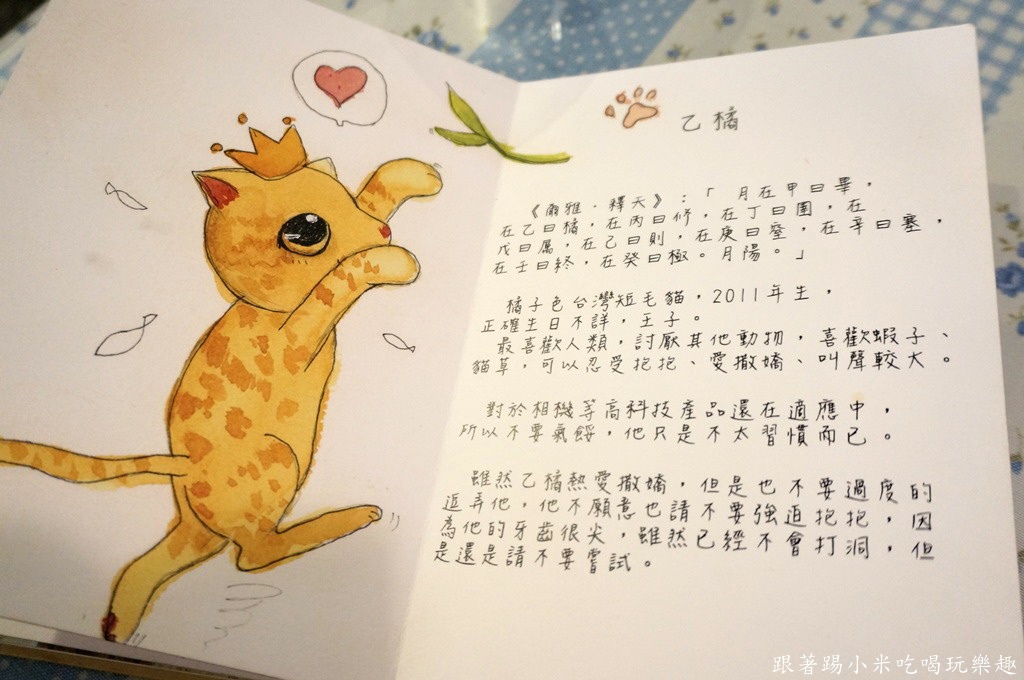 乙橘
《爾雅．釋天》：「月在甲曰畢，
在乙曰橘，在丙曰修，在丁曰圉，在
戊曰厲，在己曰則，在庚曰窒，在辛曰塞，
在壬曰終，在癸曰極。月陽。」
橘子色台灣短毛貓，2011年生，
正確生日不詳，王子。
最喜歡人類，討厭其他動物，喜歡蝦子、
貓草，可以忍受抱抱、愛撒嬌、叫聲較大。
對於相機等高科技產品還在適應中，
所以不要氣餒，他只是不太習慣而已。
雖然乙橘熱愛撒嬌，但是也不要過度的
逗弄他，他不願意也請不要強迫抱抱，因
為他的牙齒很尖，雖然已經不會打洞，但
是還是請不要嘗試。
跟著踢小米吃喝玩樂趣